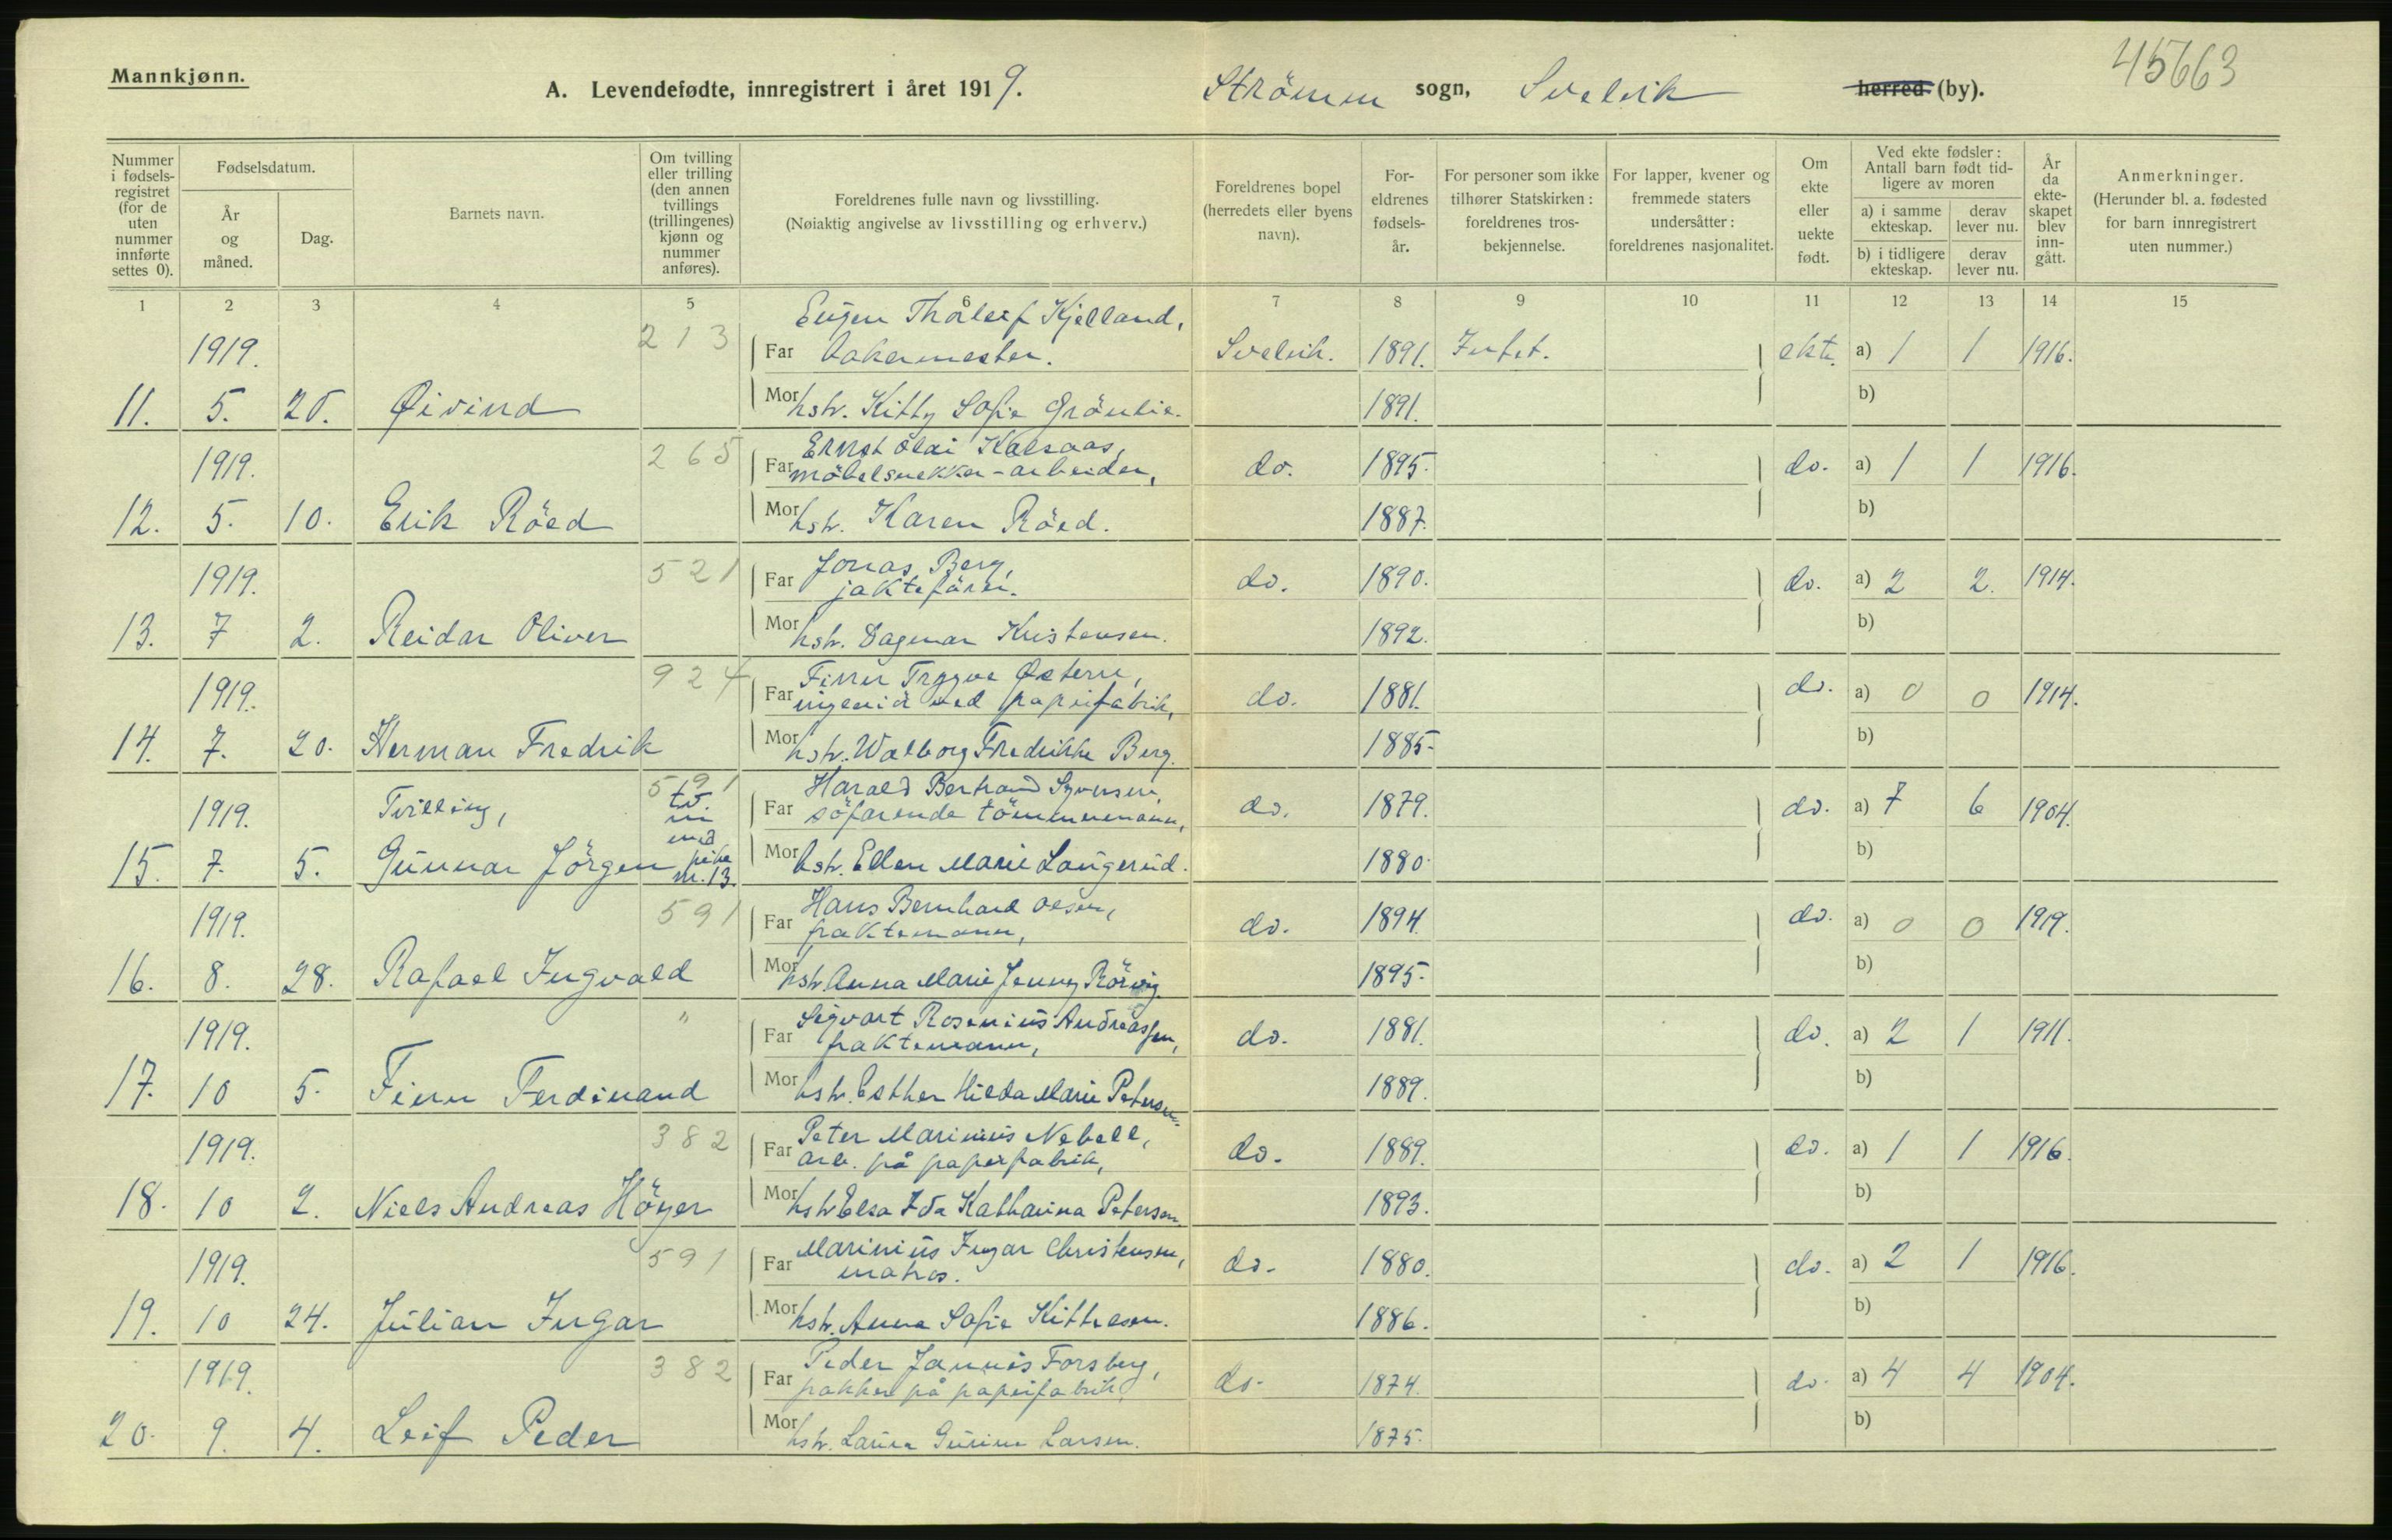 Mannkjønn.
A. Levendefødte, innregistrert i året 1919. Strömm sogn, Svelvik herred (by).
45663
Nummer i fødsels-registret (for de uten nummer innførte settes 0).
Fødselsdatum.
År og måned.
Dag.
Barnets navn.
Om tvilling eller trilling (den annen tvillings (trillingenes) kjønn og nummer anføres).
Foreldrenes fulle navn og livsstilling.
(Nøiaktig angivelse av livsstilling og erhverv.)
Foreldrenes bopel (herredets eller byens navn).
For-eldrenes fødsels-år.
For personer som ikke tilhører Statskirken: foreldrenes tros-bekjennelse.
For lapper, kvener og fremmede staters undersåtter: foreldrenes nasjonalitet.
Om ekte eller uekte født.
Ved ekte fødsler: Antall barn født tid-ligere av moren
a) i samme ekteskap.
derav lever nu.
b) i tidligere ekteskap.
derav lever nu.
År da ekte-skapet blev inn-gått.
Anmerkninger.
(Herunder bl. a. fødested for barn innregistrert uten nummer.)
1 2 3 4 5 6 7 8 9 10 11 12 13 14 15
213 Eugen Thorleif Kjelland,
1919. Far bakermester. Svelvik. 1891. Intet. ekte. a) 1 1 1916.
11. 5. 25. Øivind Mor hstr. Kitty Sofie Grönlie. 1891. b)
265 Ernst Olai Kalsaas,
1919. Far möbelsnekker-arbeider, do. 1895. do. a) 1 1 1916.
12. 5. 10. Erik Röed Mor hstr. Karen Röed. 1887. b)
521 Jonas Berg,
1919. Far jakteförer. do. 1890. do. a) 2 2. 1914.
13. 7 2. Reidar Oliver Mor hstr. Dagmar Kristensen. 1892. b)
924 Finn Trygve Østern,
1919. Far ingeniör ved papirfabrik, do. 1881. do. a) 0 0 1914.
14. 7. 20. Herman Fredrik Mor hstr. Walborg Fredrikke Berg. 1885. b)
591 Harald Bertrand Syversen,
1919. Tvilling, tv. m Far söfarende tömmermann, do. 1879. do. a) 7 6 1904.
15. 7. 5. Gunnar Jörgen med pike nr. 13. Mor hstr. Ellen Marie Laugerud. 1880. b)
591 Hans Bernhard Olsen,
1919. Far fraktemann, do. 1894. do. a) 0 0 1919.
16. 8. 28. Rafael Ingvald Mor hstr. Anna Marie Jenny Rörvig. 1895. b)
" Sigvart Rosenius Andreassen,
1919. Far fraktemann, do. 1881. do. a) 2 1 1911.
17. 10 5. Finn Ferdinand Mor hstr. Esther Hilda Marie Petersen. 1889. b)
382 Peter Marinius Nebell,
1919. Far arb. på papirfabrik, do. 1889. do. a) 1 1 1916.
18. 10 2. Niels Andreas Höyer Mor hstr Elsa Ida Katharina Petersen. 1893. b)
591 Marinius Ingar Christensen,
1919. Far matros. do. 1880. do. a) 2 1 1916.
19. 10 24. Julian Ingar Mor hstr. Anna Sofie Kittelsen. 1886. b)
382 Peder Jannis Forsberg,
1919. Far pakker på papirfabrik, do. 1874. do. a) 4 4 1904.
20. 9. 4. Leif Peder Mor hstr. Laura Gurine Larsen. 1875. b)